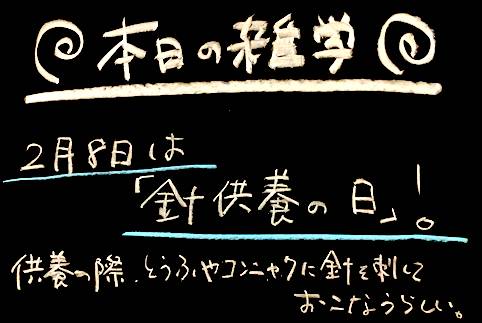 本日の雑学
2月8日は
「針供養の日」!。
供養の際、とうふやコンニャクに針を刺して
おこなうらしい。